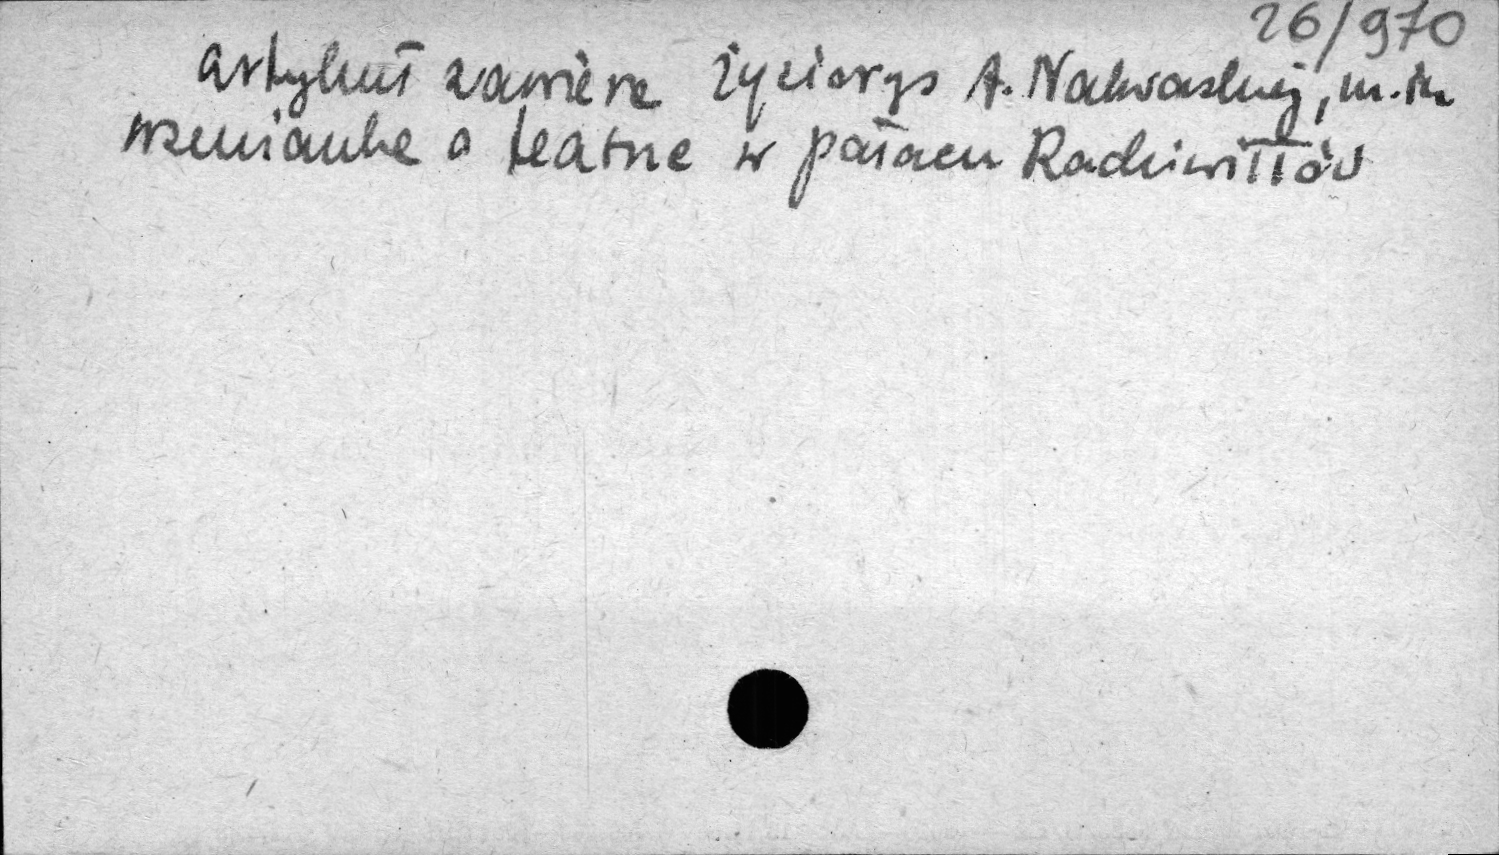 26/970
artykuł zawiera życiorys A. Nakwaskiej, m.in.
wzmiankę o teatrze w pałacu Radziwiłłów